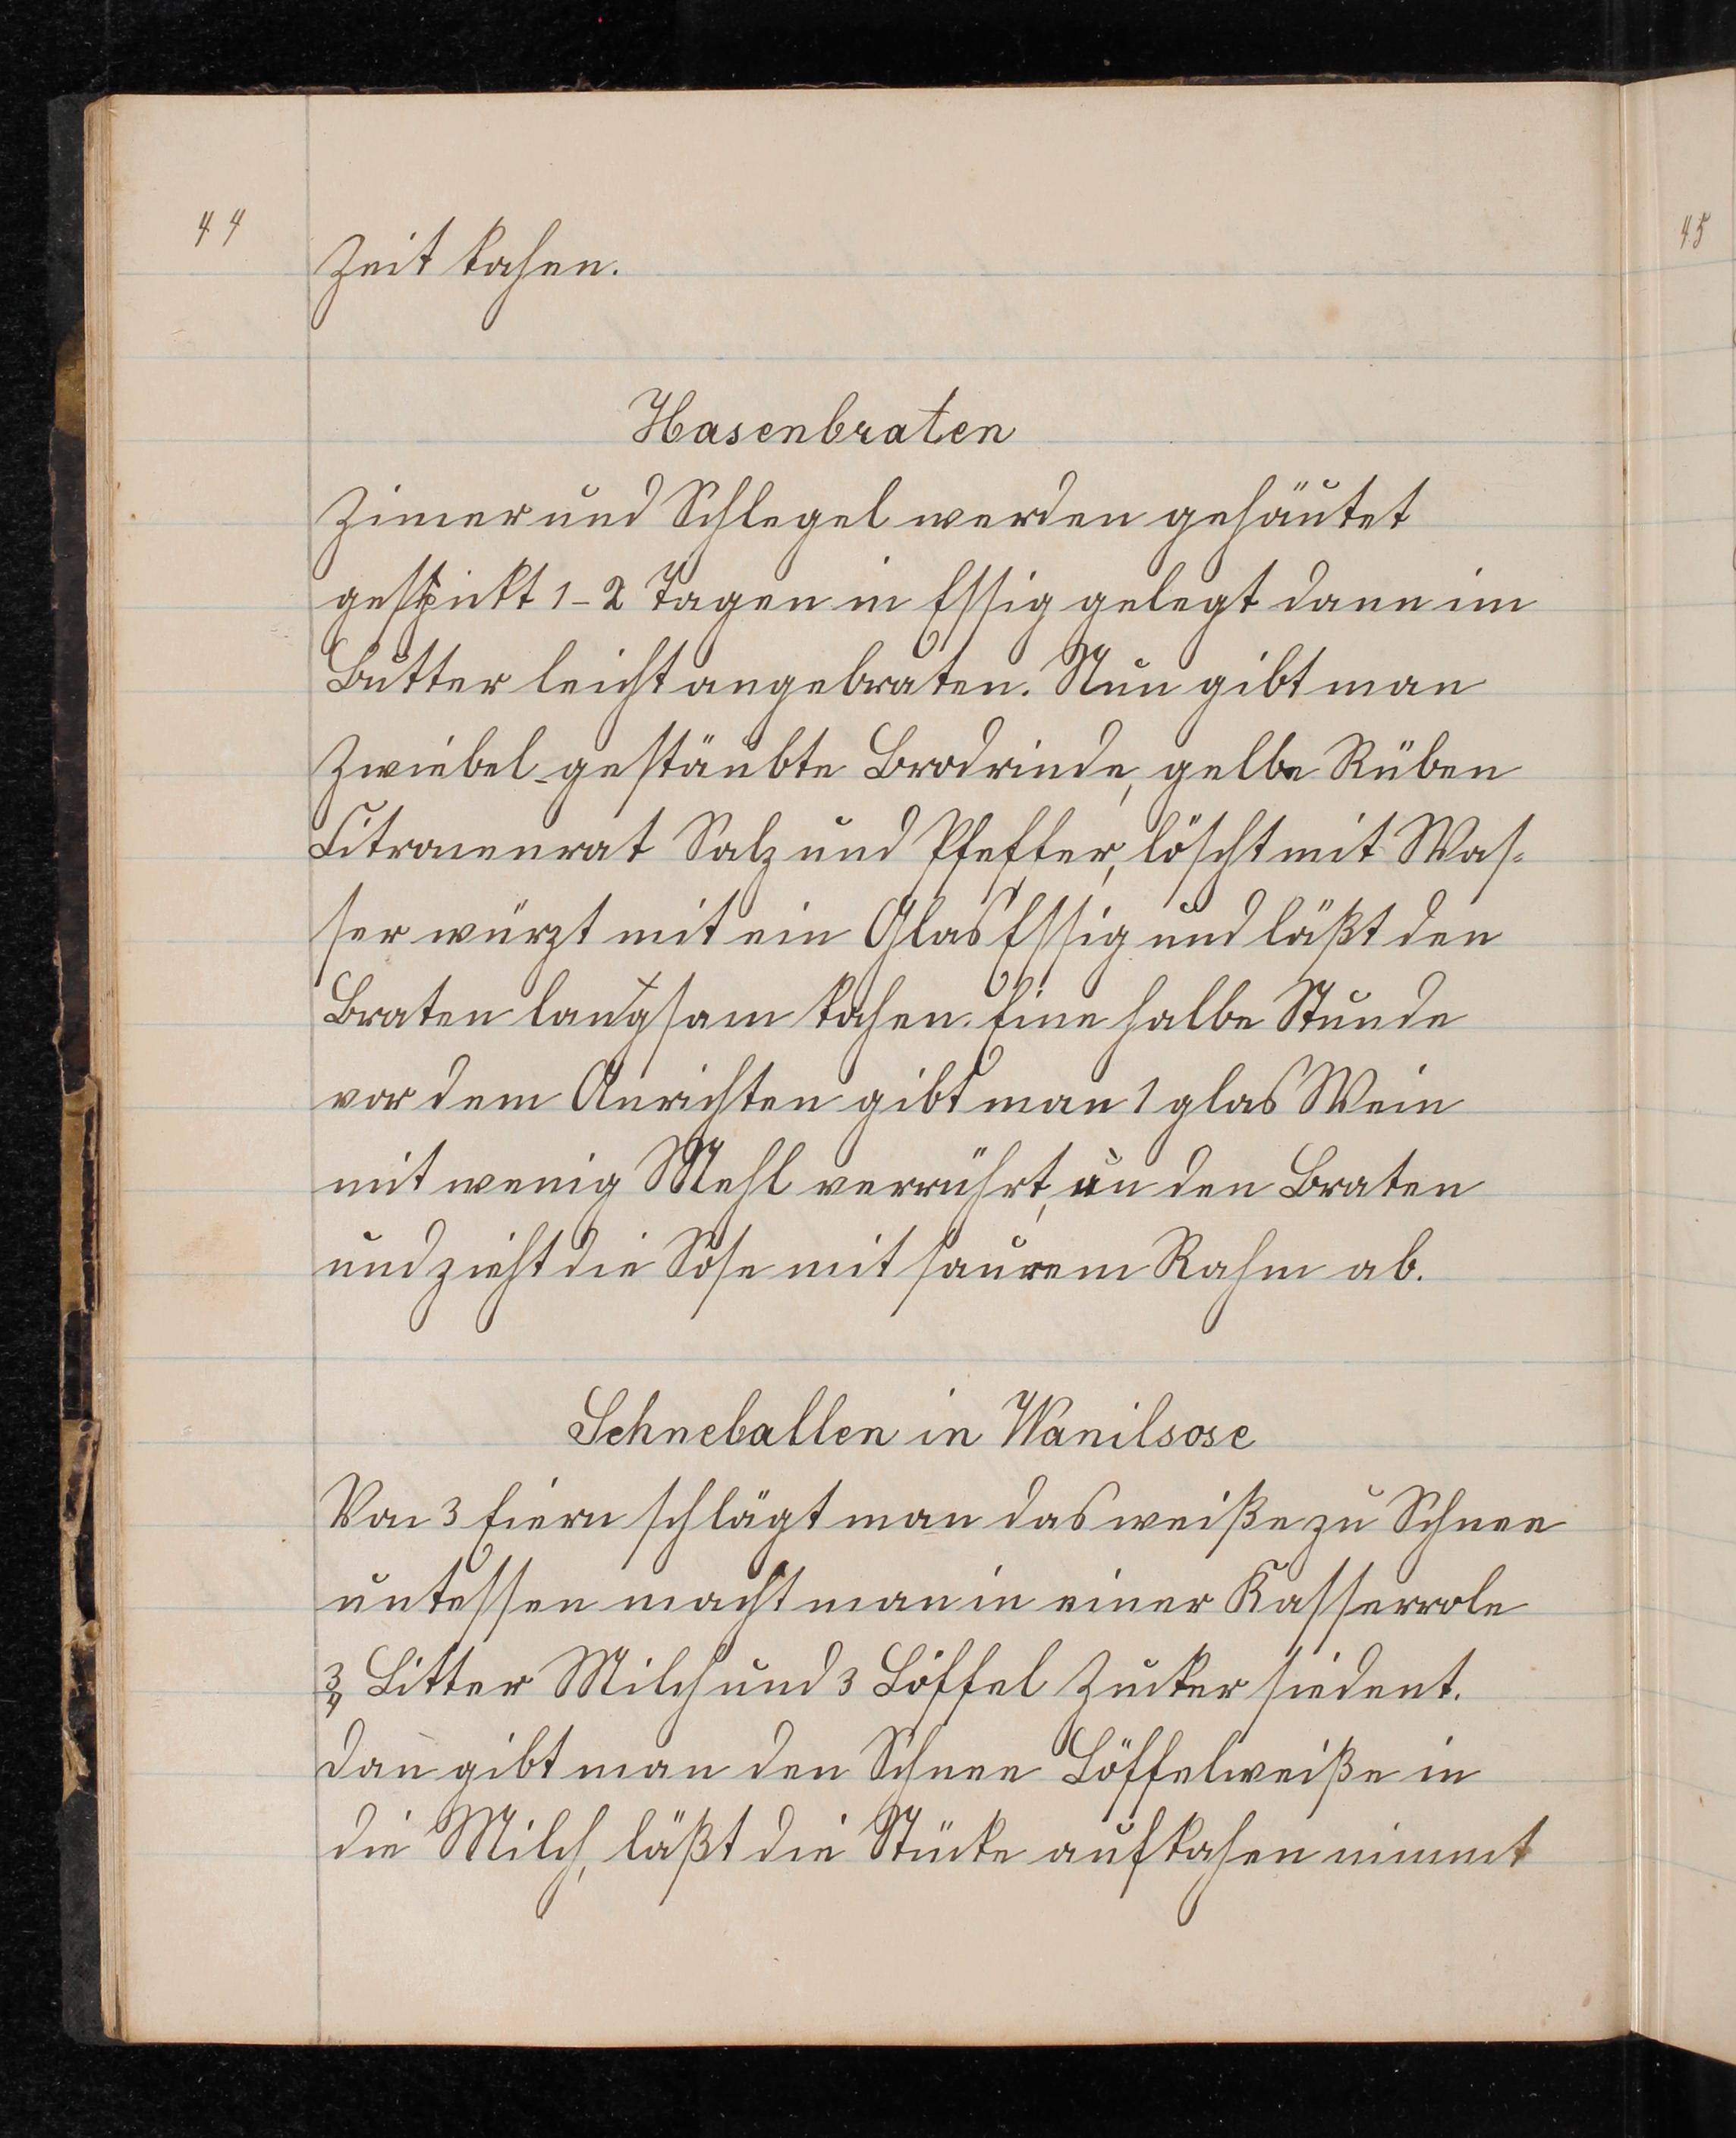 44
Zeit kochen.
Hasenbraten
Zimer und Schlegel werden gehäutet
gespickt 1-2 Tagen in Essig gelegt dann im
Butter leicht angebraten. Nun gibt man
Zwiebel gestäubte Brodrinde, gelbe Rüben
Citronenrat Salz und Pfeffer, löscht mit Was-
ser würzt mit ein Glas Essig und läßt den
Braten langsam kochen. Eine halbe Stunde
vor dem Anrichten gibt man 1 glas Wein
mit wenig Mehl verrührt, an den Braten
und zieht die Sose mit saurem Rahm ab.
Schneballen in Wanilsose
Von 3 Eiern schlägt man das weiße zu Schnee
untessen macht man in einer Kasserrole
3/4 Litter Milch und 3 Löffel Zucker siedent.
dan̄ gibt man den Schnee Löffelweiße in
die Milch, läßt die Stücke aufkochen nimmt
45